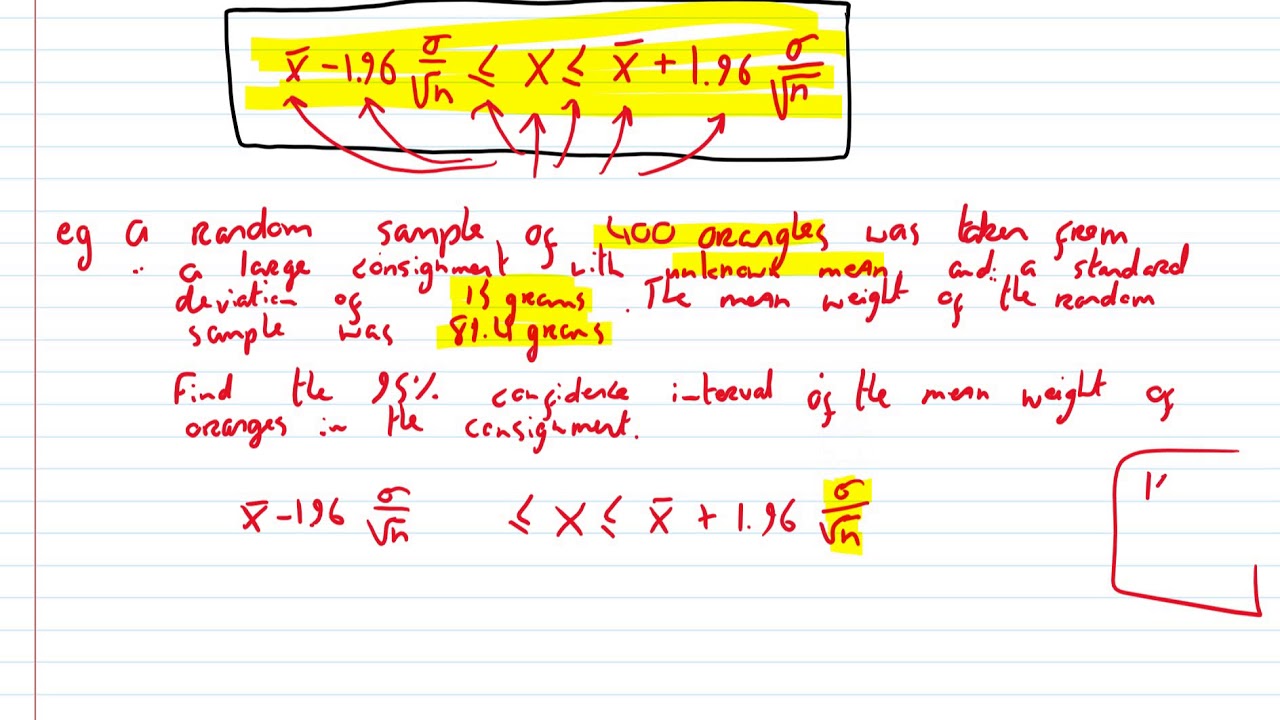 x̄ - 1.96 σ/√n ≤ X ≤ x̄ + 1.96 σ/√n
eg a Random sample of 400 orangles was taken from
a large consignment with unknown mean and a standard
deviation of 15 grams. The mean weight of the random
sample was 81.4 grams
Find the 95% confidence interval of the mean weight of
oranges in the consignment.
x̄ - 1.96 σ/√n ≤ X ≤ x̄ + 1.96 σ/√n